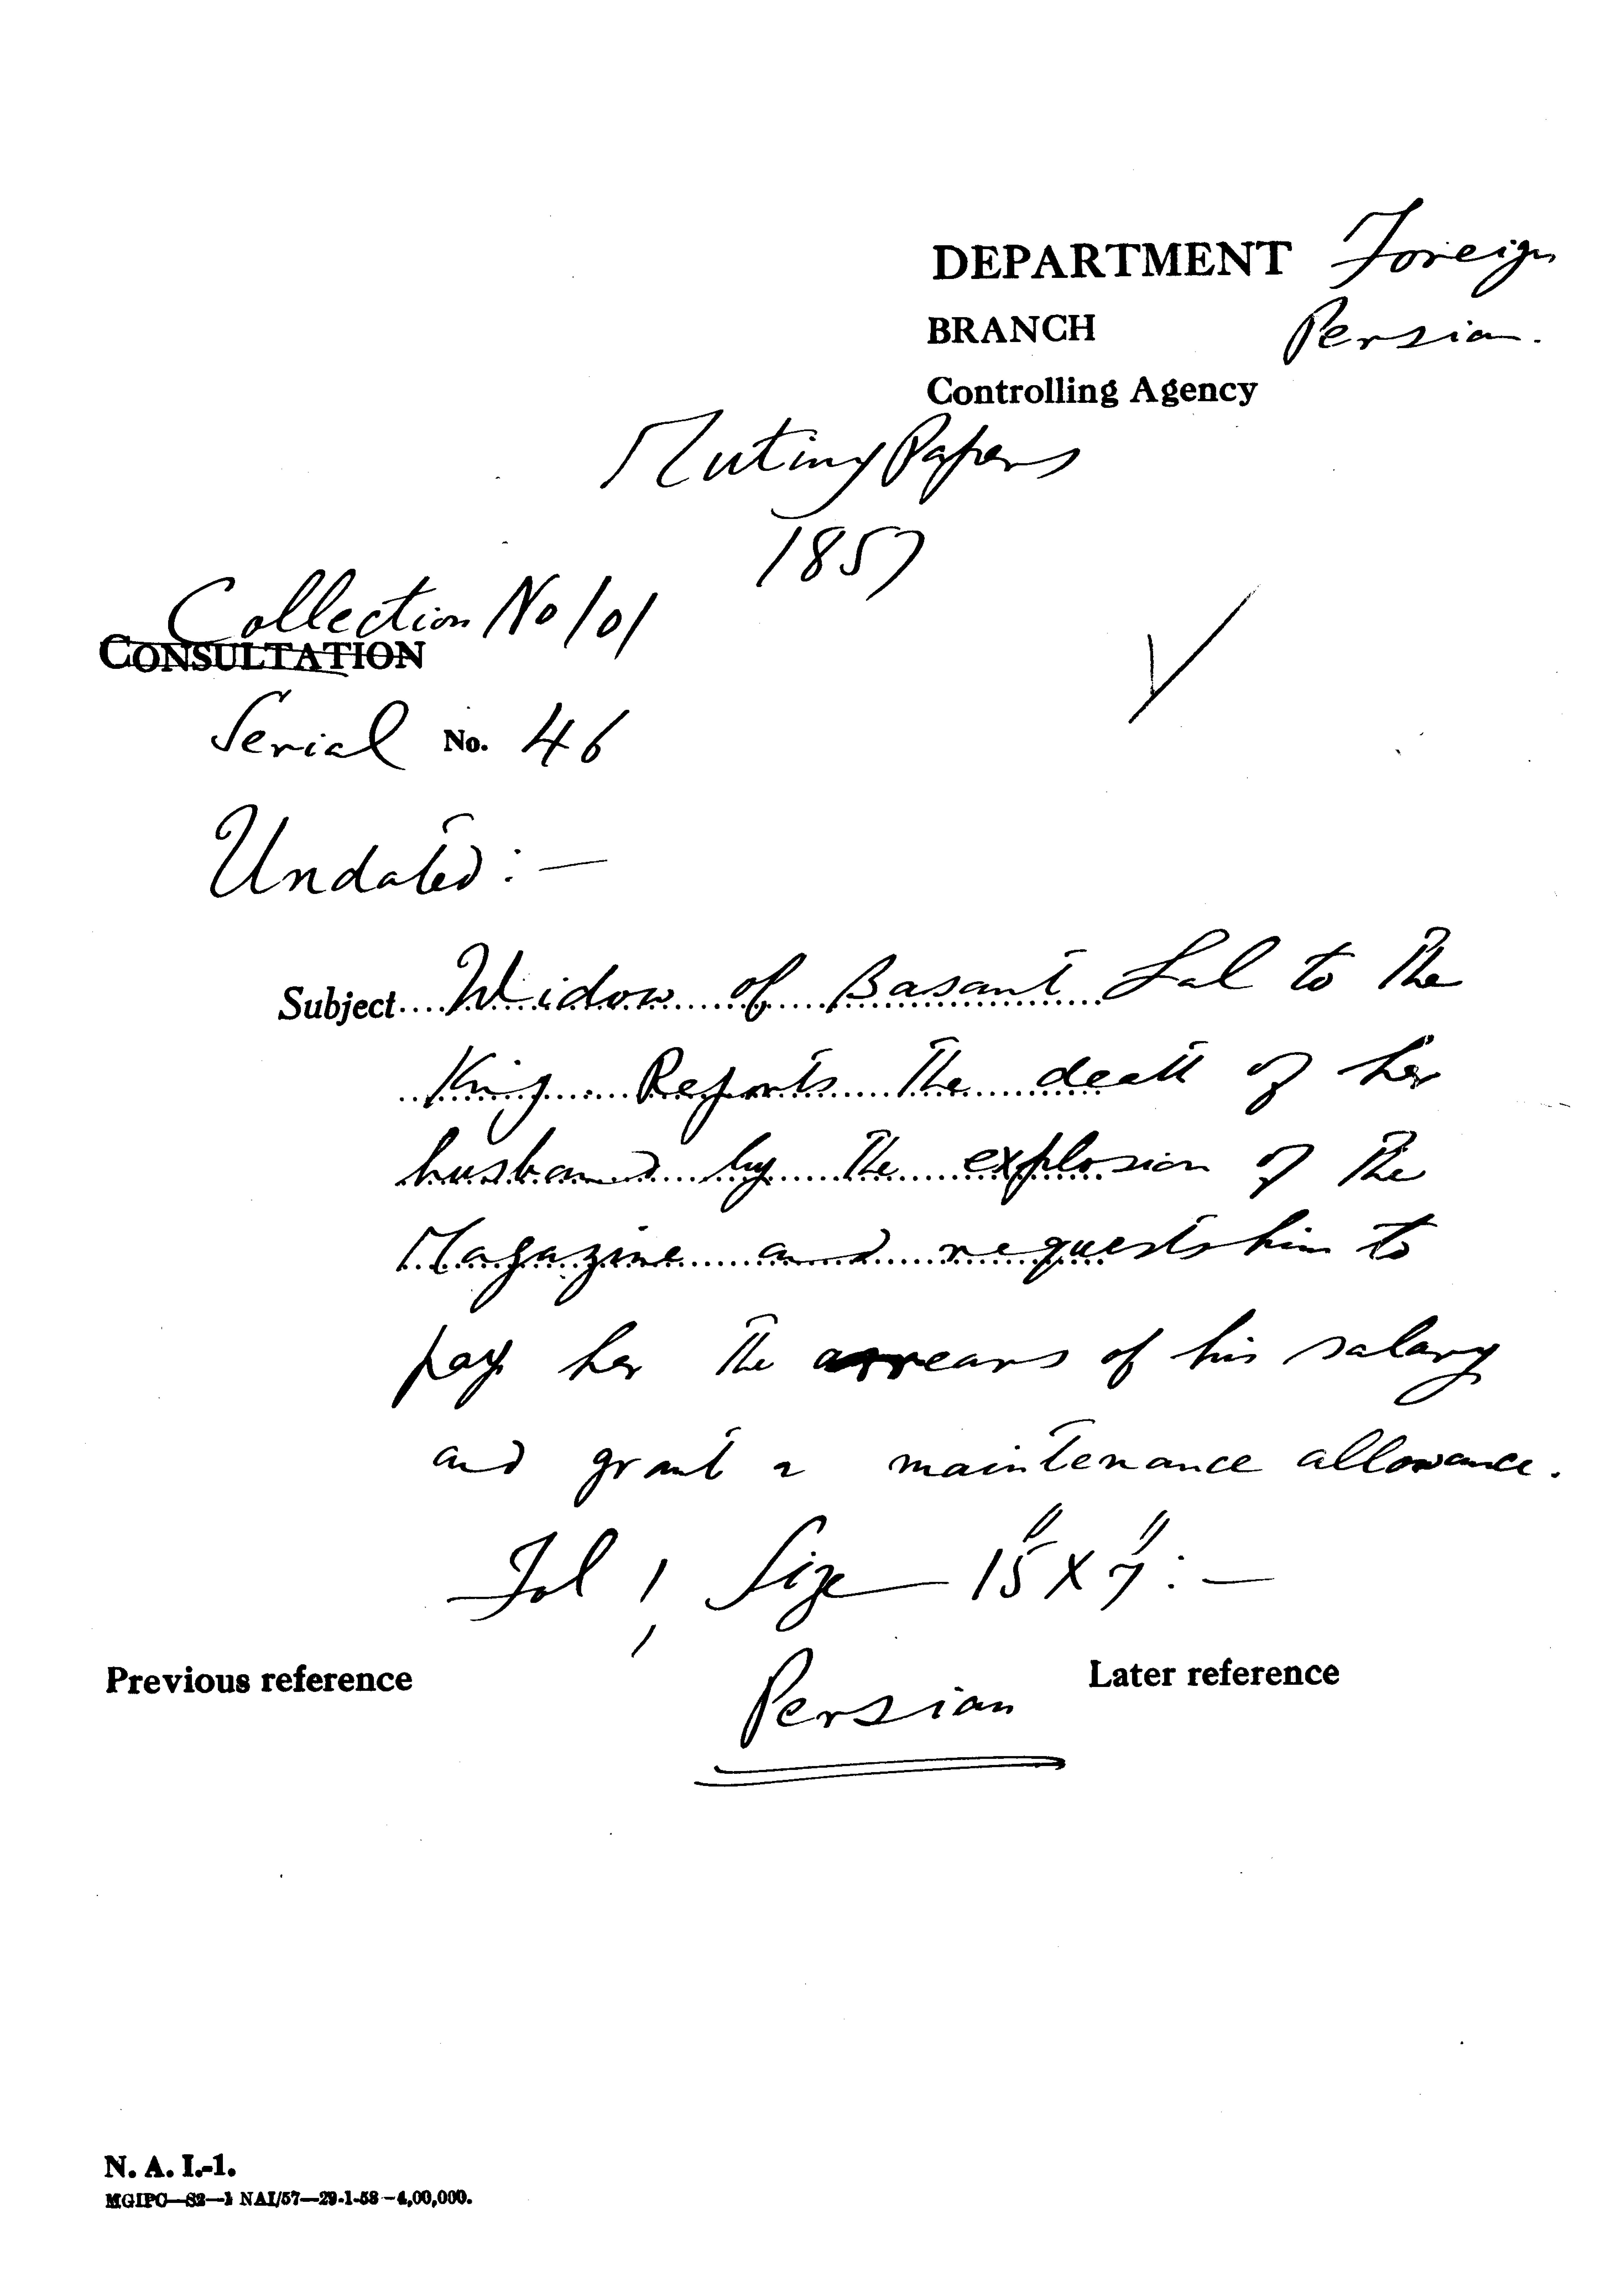 DEPARTMENT Foreign
BRANCH Persian.
Controlling Agency
Mutiny Papers
1857
Collection No 101
CONSULTATION
Serial No. 46
Undated:—
Subject....Widow of Basant Lal to the
King Reports the death of her
husband by the explosion of the
Magazine and requests him to
pay her the arrears of his salary
and grant a maintenance allowance.
Fol 1, Size — 15" X 7":—
Previous reference Persian Later reference
N. A. I.-1.
MGIPC—S2—1 NAI/57—29-1-58—4,00,000.